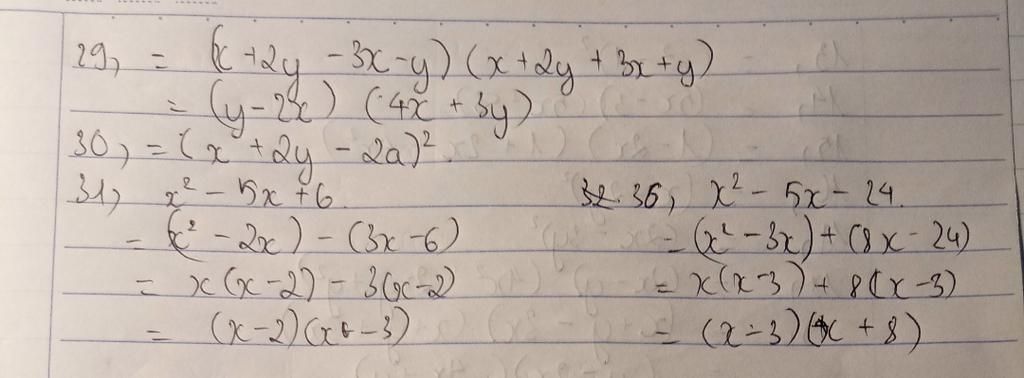 29, = (x + 2y - 3x - y) (x + 2y + 3x + y)
= (y - 2x) (4x + 3y)
30, = (x + 2y - 2a)².
31, x² - 5x + 6
= (x² - 2x) - (3x - 6)
= x(x - 2) - 3(x - 2)
= (x - 2)(x - 3)
36, x² - 5x - 24.
= (x² - 3x) + (8x - 24)
= x(x - 3) + 8(x - 3)
= (x - 3)(x + 8)